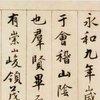 永和九年
于會稽山陰
也羣賢畢
有崇山峻領茂